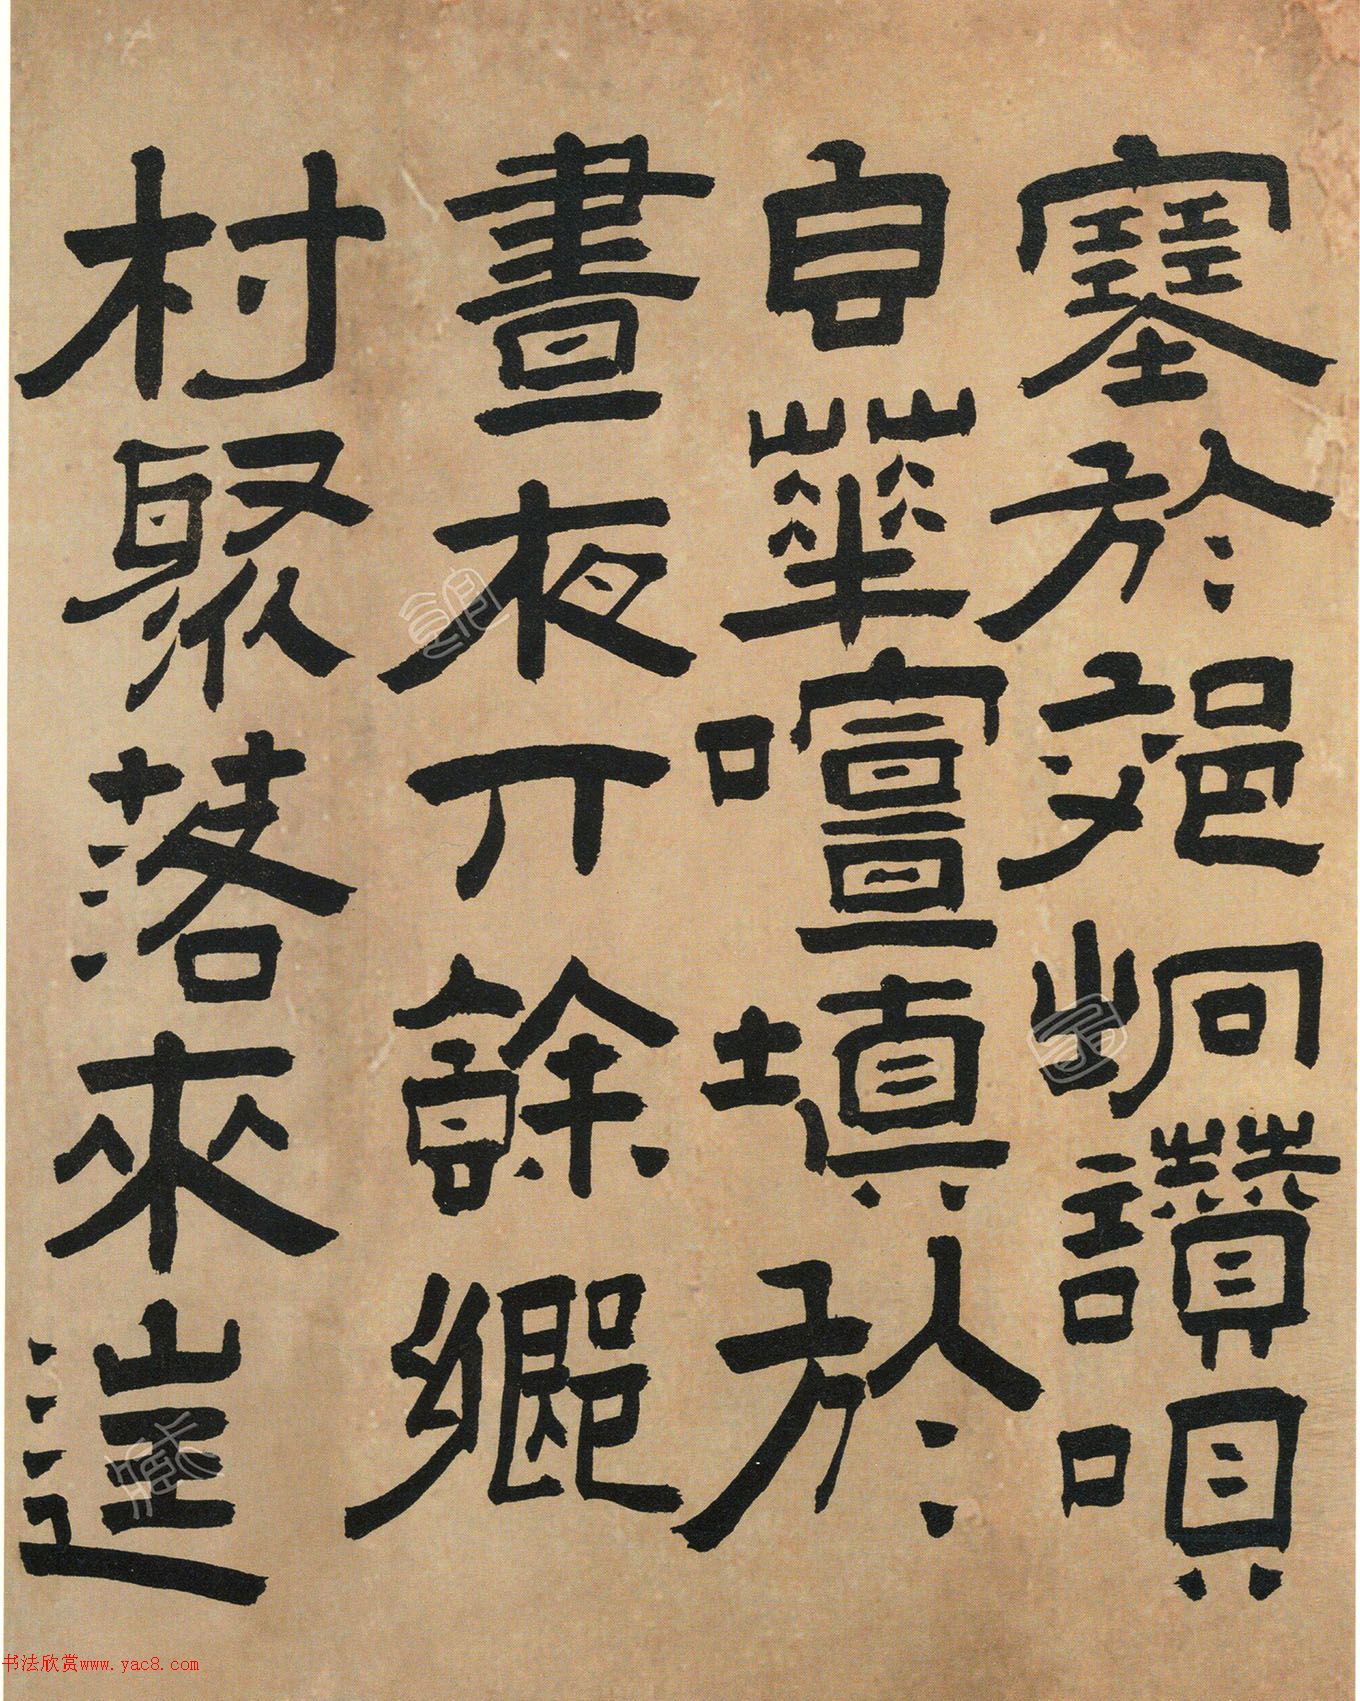 塞於郊坰讚唄
皀華喧填於
晝夜丌餘鄉
村聚落來往
书法欣赏www.yac8.com